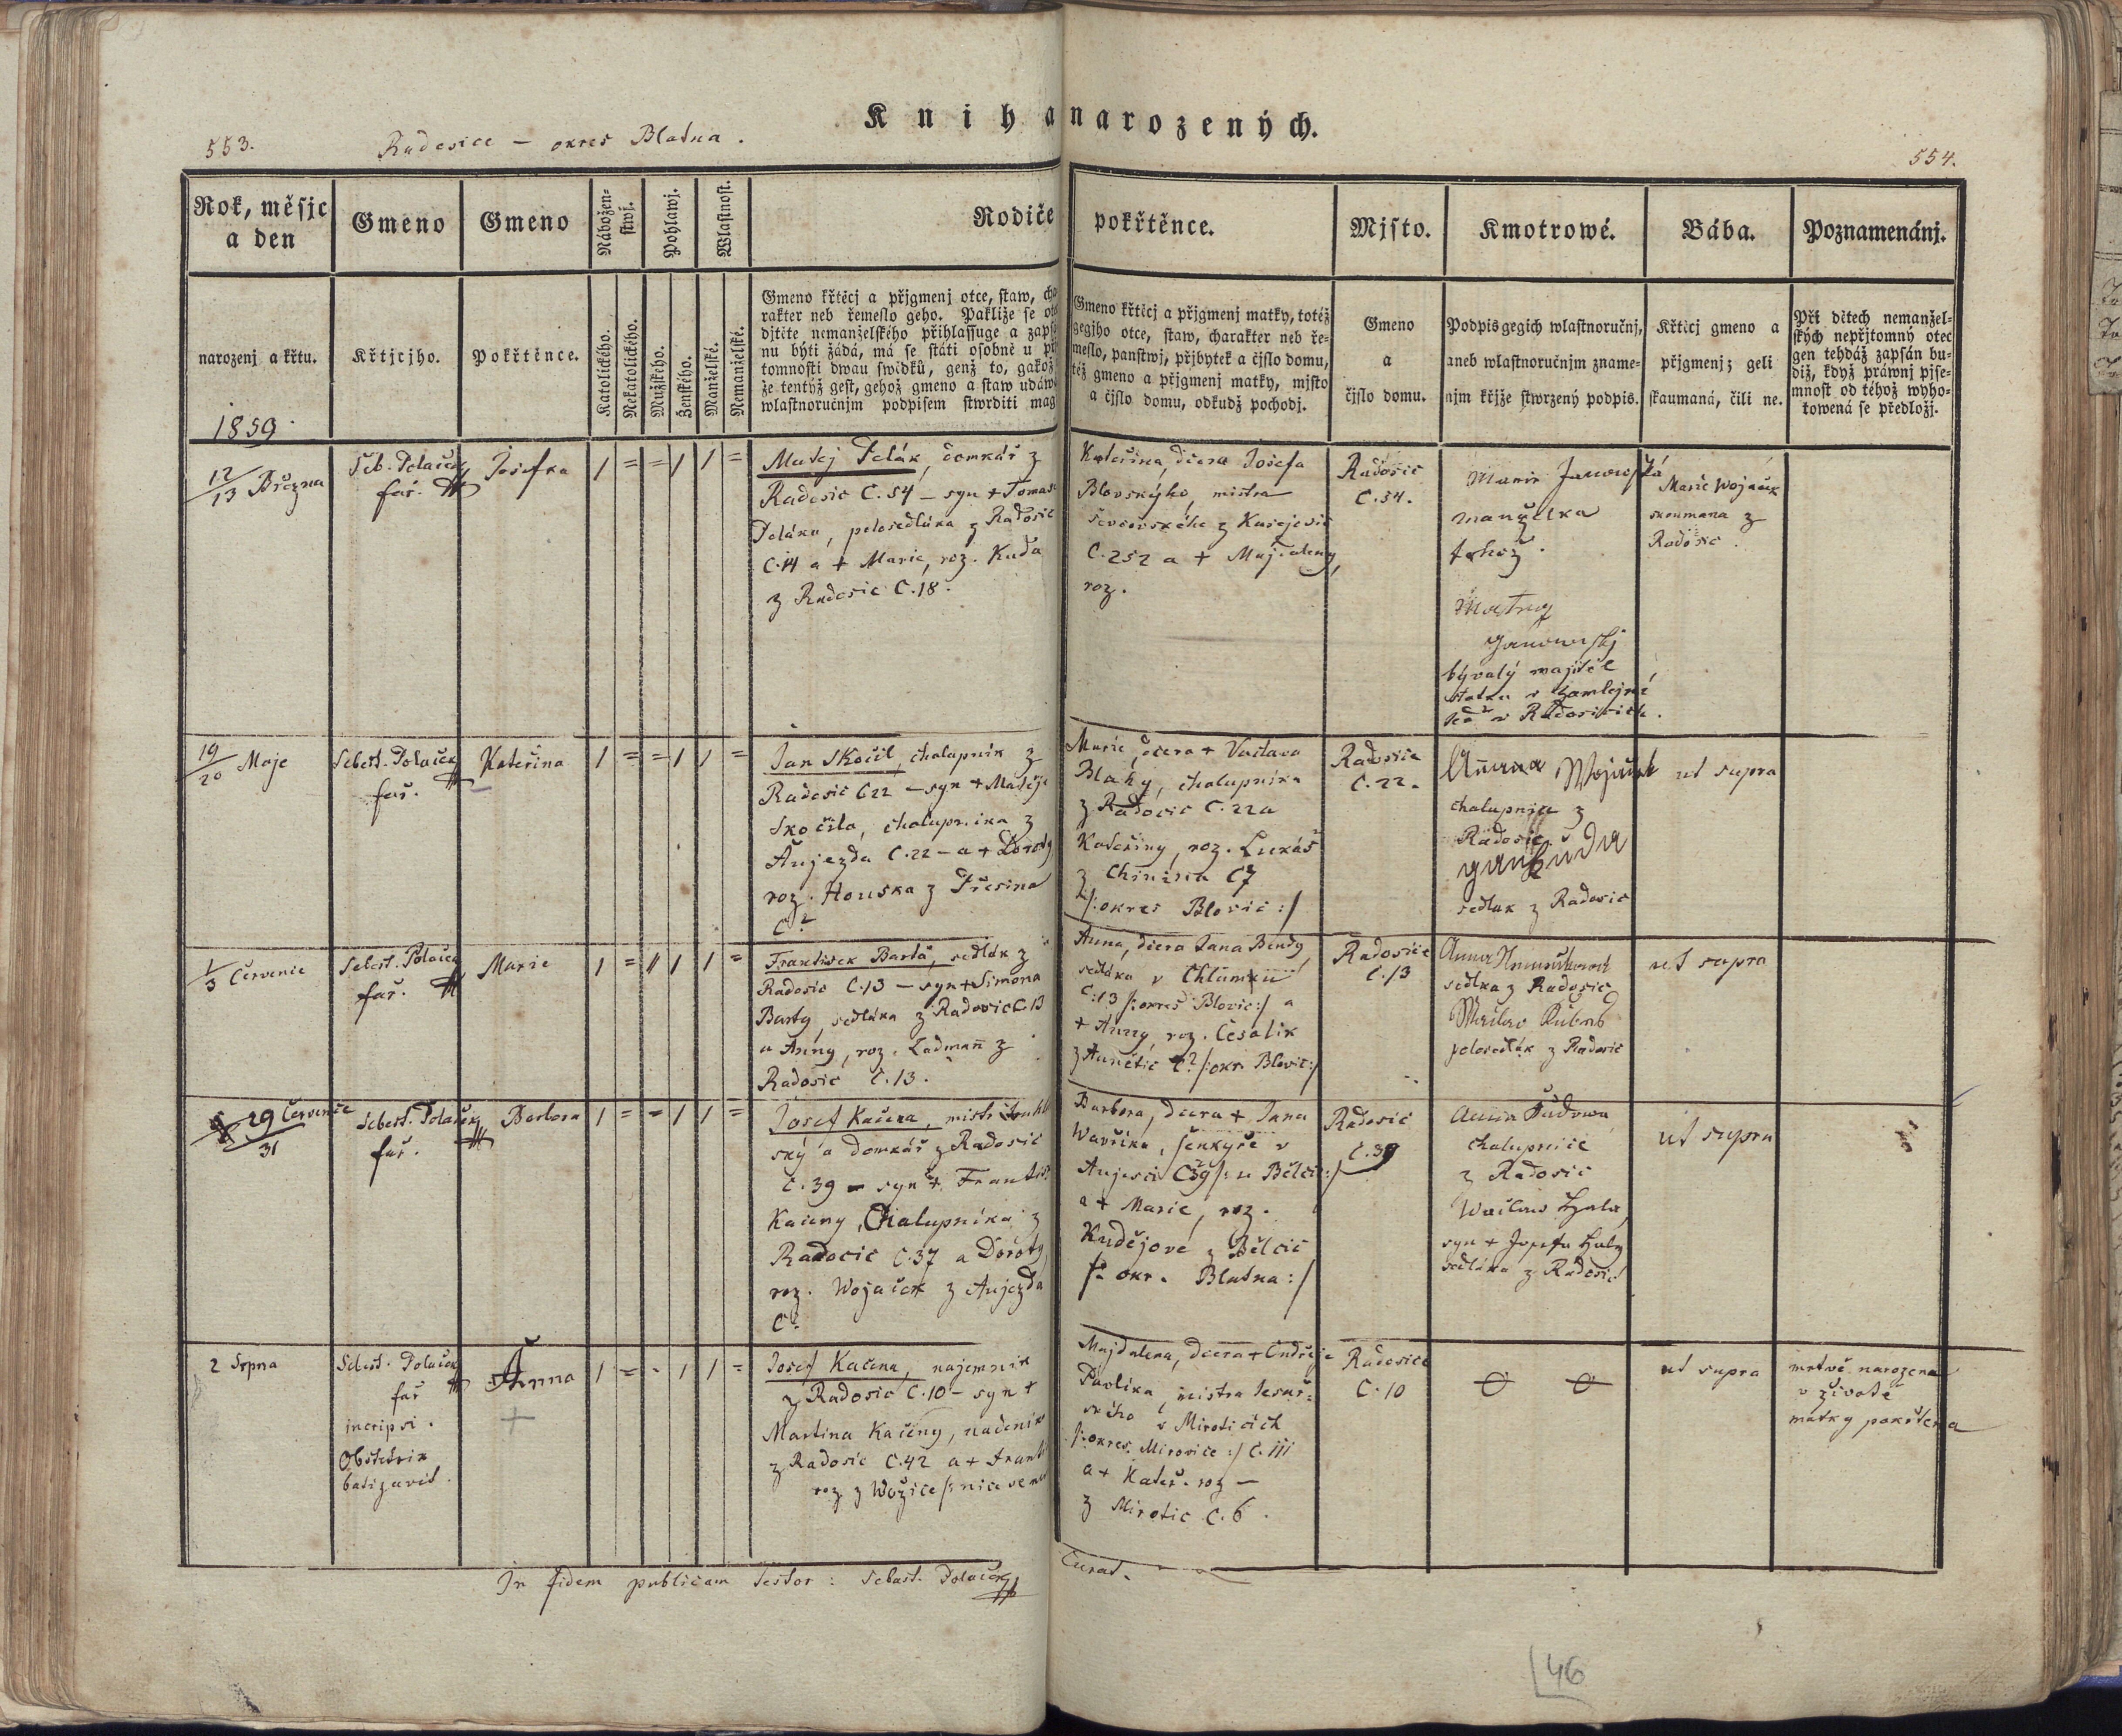 Kniha narozených.
553.
Radosice – okres Blatna.
554.
Rok, měsjc
a den
Gmeno
Gmeno
Nábožen-
stwj.
Pohlawj.
Wlastnost.
Rodiče
pokřtěnce.
Mjsto.
Kmotrowé.
Bába.
Poznamenánj.
narozenj a křtu.
Křtjcjho.
Pokřtěnce.
Katolického.
Nekatolického.
Mužského.
Ženského.
Manželské.
Nemanželské.
Gmeno křtěcj a přjgmenj otce, staw, cha
rakter neb řemeslo geho. Pakliže se ot
djtěte nemanželského přihlassuge a zaps
nu býti žádá, má se státi osobně u př
tomnosti dwau swědků, genž to, gakož
že tentýž gest, gehož gmeno a staw udáw
wlastnoručnjm podpisem stwrditi mag
Gmeno křtěcj a přjgmenj matky, totéž
gegjho otce, staw, charakter neb ře-
meslo, panstwj, přjbytek a čjslo domu,
též gmeno a přjgmenj matky, mjsto
a čjslo domu, odkudž pocházj.
Gmeno
a
čjslo domu.
Podpis gegich wlastnoručnj,
aneb wlastnoručnjm zname-
njm křjže stwrzený podpis.
Křtěcj gmeno a
přjgmenj; geli
skaumaná, čili ne.
Při dětech nemanžel-
ských nepřjtomný otec
gen tehdáž zapsán bu-
diž, když práwnj pjse-
mnost od téhož wyho-
towená se předložj.
1859
12/13 Března
Seb. Polaček
far.
Josefka
1 = = 1 1 =
Matej Polák, domkář z
Radosic C. 54 – syn + Tomaše
Poláka, polosedláka z Radosic
C.14 a + Marie, roz. Kuda
z Radosic C. 18.
Kateřina, dcera Josefa
Blovského, mistra
ševcovského z Kasejovic
C. 252 a + Majdaleny,
roz.
Radosic
C. 54.
Marie Janowská
manželka
tohož.
Janowskj
bývalý majitel
statku v
teď v Radosicich.
Marie Wojaček
skoumana z
Radosic.
19/20 Maje
Sebest. Polaček
far.
Kateřina
1 = = 1 1 =
Jan Skočil, chalupník z
Radosic C 22 – syn + Matěje
Skočila, chalupnika z
Aujezda C. 22 – a + Doroty
roz. Houska z Třesina
C?
Marie, dcera + Vaclava
Blahy, chalupníka
z Radosic C. 22 a
Kateřiny, roz. Lukáš
z Chinina C 7
/: okres Blovic :/
Radosice
C. 22.
Anna Wojaček
chalupnice z
Radosic
Jan Kuda
sedlak z Radosic
ut supra
1/3 Červenie
Sebest. Polaček
far.
Marie
1 = 1 1 =
Frantisek Barta, sedlák z
Radosic C. 13 – syn + Simona
Barty, sedláka z Radosic C. 13
a Anny, roz. Ladmann z
Radosic C. 13.
Anna, dcera Jana Bendy,
sedláka v Chlumku
C: 13 /: okres Blovic :/ a
+ Anny, roz. Česalik
z Aunětic C? /: okr. Blovic :/
Radosice
C. 13
Anna
sedlka z Radosic
polosedlák z Radosic
ut supra
29 Červenie/31
Sebest. Polaček
far.
Barbora
1 = = 1 1 =
Josef Kačena, mistr truhl
ský a domkář z Radosic
C. 39 – syn + Frantis
Kačeny, Chalupníka z
Radosic C. 37 a Doroty,
roz. Wojaček z Aujezda
C?
Barbora, dcera + Jana
Wavřika, šenkýře v
Aujezci C 39 /: u Bělčic :/
a + Marie, roz.
Kudějové z Bělcic
/: okr. Blatna :/
Radosic
C. 39
Anna
chalupnice
z Radosic
Waclaw Hala,
syn + Josefa Haly
sedláka z Radosic
ut supra
2 Srpna
Sebest. Polaček
far
inscripsi.
Obstetrix
batizavit.
Anna
1 = - 1 1 =
Josef Kačena, najemník
z Radosic C. 10 – syn +
Martina Kačeny, nadeník
z Radosic C. 42 a + Franti
roz z Wožice /: nice se ne
Majdalena, dcera + Ondřeje
Pavlíka, mistra tesař-
ského v Miroticich
/: okres. Mirovice :/ C. 111
a + Kateř. roz –
z Mirotic C. 6.
Radosice
C. 10
ut supra
mrtvě narozena
v životě
matky pokřtena
In fidem publicam testor: Sebast. Polaček
Curat.
46